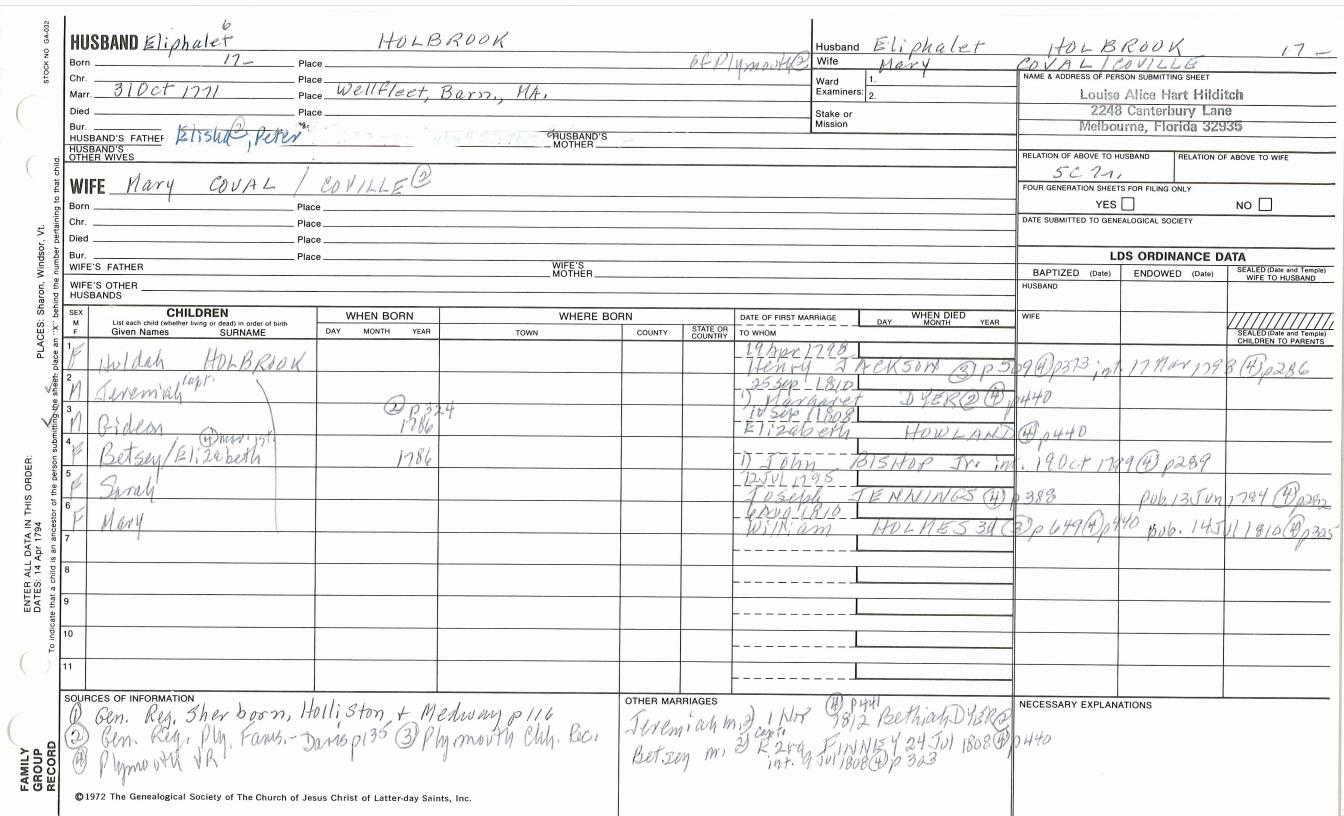 STOCK NO. GA-032
PLACES: Sharon, Windsor, Vt.
ENTER ALL DATA IN THIS ORDER:
DATES: 14 Apr 1794
To indicate that a child is an ancestor of the person submitting the sheet, place an "X" behind the number pertaining to that child.
FAMILY
GROUP
RECORD
6
HUSBAND Eliphalet HOLBROOK
Born 17- Place of Plymouth (2)
Chr. Place
Marr. 31 Oct 1771 Place Wellfleet, Barn., MA.
Died Place
Bur. Place
HUSBAND'S FATHER Elisha (2), Peter HUSBAND'S MOTHER
HUSBAND'S OTHER WIVES
WIFE Mary COVAL / COVILLE (2)
Born Place
Chr. Place
Died Place
Bur. Place
WIFE'S FATHER WIFE'S MOTHER
WIFE'S OTHER HUSBANDS
Husband Eliphalet HOLBROOK 17-
Wife Mary COVAL/COVILLE
Ward Examiners: 1. 2.
Stake or Mission
NAME & ADDRESS OF PERSON SUBMITTING SHEET
Louise Alice Hart Hilditch
2248 Canterbury Lane
Melbourne, Florida 32935
RELATION OF ABOVE TO HUSBAND RELATION OF ABOVE TO WIFE
5C
FOUR GENERATION SHEETS FOR FILING ONLY
YES NO
DATE SUBMITTED TO GENEALOGICAL SOCIETY
LDS ORDINANCE DATA
BAPTIZED (Date) ENDOWED (Date) SEALED (Date and Temple) WIFE TO HUSBAND
HUSBAND
WIFE
SEALED (Date and Temple) CHILDREN TO PARENTS
SEX M F
CHILDREN
List each child (whether living or dead) in order of birth
Given Names SURNAME
WHEN BORN
DAY MONTH YEAR
WHERE BORN
TOWN COUNTY STATE OR COUNTRY
DATE OF FIRST MARRIAGE
TO WHOM
WHEN DIED
DAY MONTH YEAR
19 Apr 1798
1 F Huldah HOLBROOK Henry JACKSON (3) p 509 (4) p373 int. 17 Mar 1798 (4) p286
25 Sep 1810
2 M Jeremiah Capt. 1) Margaret DYER (2) (4) p440
(2) p 324
10 Sep 1808
3 M Gideon 1786 Elizabeth HOWLAND (4) p440
4 F Betsey/Elizabeth 1786 1) John BISHOP Jr. int. 19 Oct 1799 (4) p289
12 Jul 1795
5 F Sarah Joseph JENNINGS (4) p383 pub. 13 Jun 1794 (4) p282
6 Aug 1810
6 F Mary William HOLMES 3d (3) p 649 (4) p440 pub. 14 Jul 1810 (4) p325
7
8
9
10
11
SOURCES OF INFORMATION
(1) Gen. Reg. Sherborn, Holliston, + Medway p 116
(2) Gen. Reg. Ply. Fams. - Davis p135 (3) Plymouth Chh. Rec.
(4) Plymouth VR
OTHER MARRIAGES
(4) p441
Jeremiah m. 2) 1 Nov 1812 Bethiah DYER (2)
Capt.
Betsey m. 2) FINNEY 24 Jul 1808 (4) p440
int. 9 Jul 1808 (4) p 323
NECESSARY EXPLANATIONS
©1972 The Genealogical Society of The Church of Jesus Christ of Latter-day Saints, Inc.